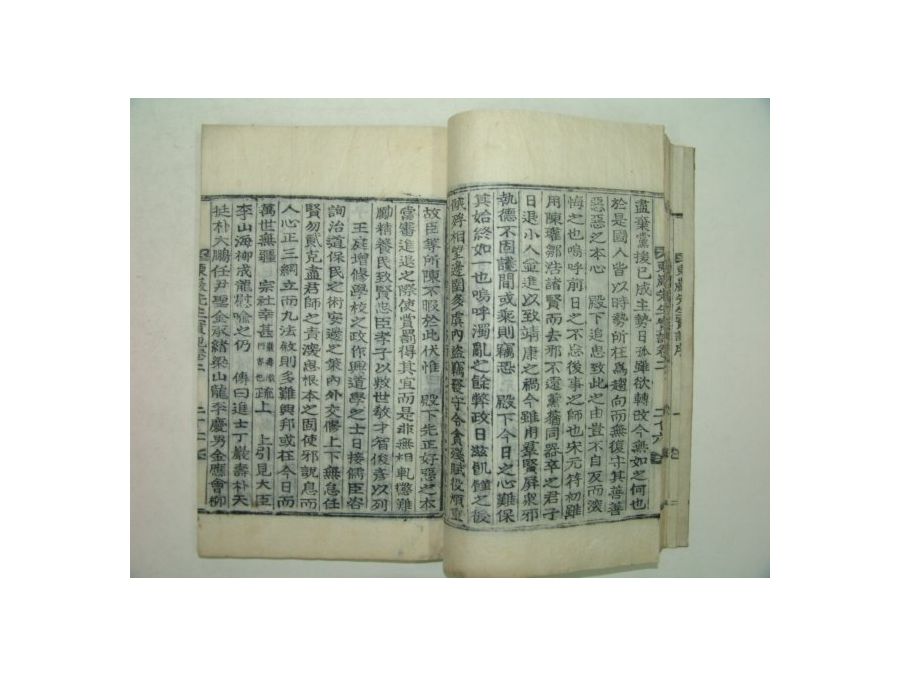 盡棄黨援已成主勢日孤雖欲轉改今無如之何也
於是國人皆以時勢所在爲趨向而無復守其善善
惡惡之本心 殿下追思致此之由豈不自反而深
悔之也嗚呼前日之不忘後事之師也宋元符初雖
用陳瓘鄒浩諸賢而去邪不遠薰蕕同器卒之君子
日退小人益進以致靖康之禍今雖用羣賢屏衆邪
執德不固讒間或乘則竊恐 殿下今日之心難保
其始終如一也嗚呼濁亂之餘弊政日滋飢饉之後
殍殍相望邊圉多虞內盜竊發守令貪殘賦役煩重
故臣等所陳不暇於此伏惟 殿下先正好惡之本
當審進退之際使賞罰得其宜而是非無相軋懲難
勵精養民致賢忠臣孝子以救世敎才智俊彥以列
王庭增修學校之政作興道學之士日接儒臣咨
詢治道保民之術安邊之策內外交修上下無怠任
賢勿貳克盡君師之責深思根本之固使邪說息而
人心正三綱立而九法敘則多難興邦或在今日而
萬世無疆 宗社幸甚 疏上 上引見大臣
李山海柳成龍慰喩之仍 傳曰進士丁巖壽朴天
挺朴大鵬任尹聖金承緖梁山龍李慶男金應會柳
東巖先生實記卷二